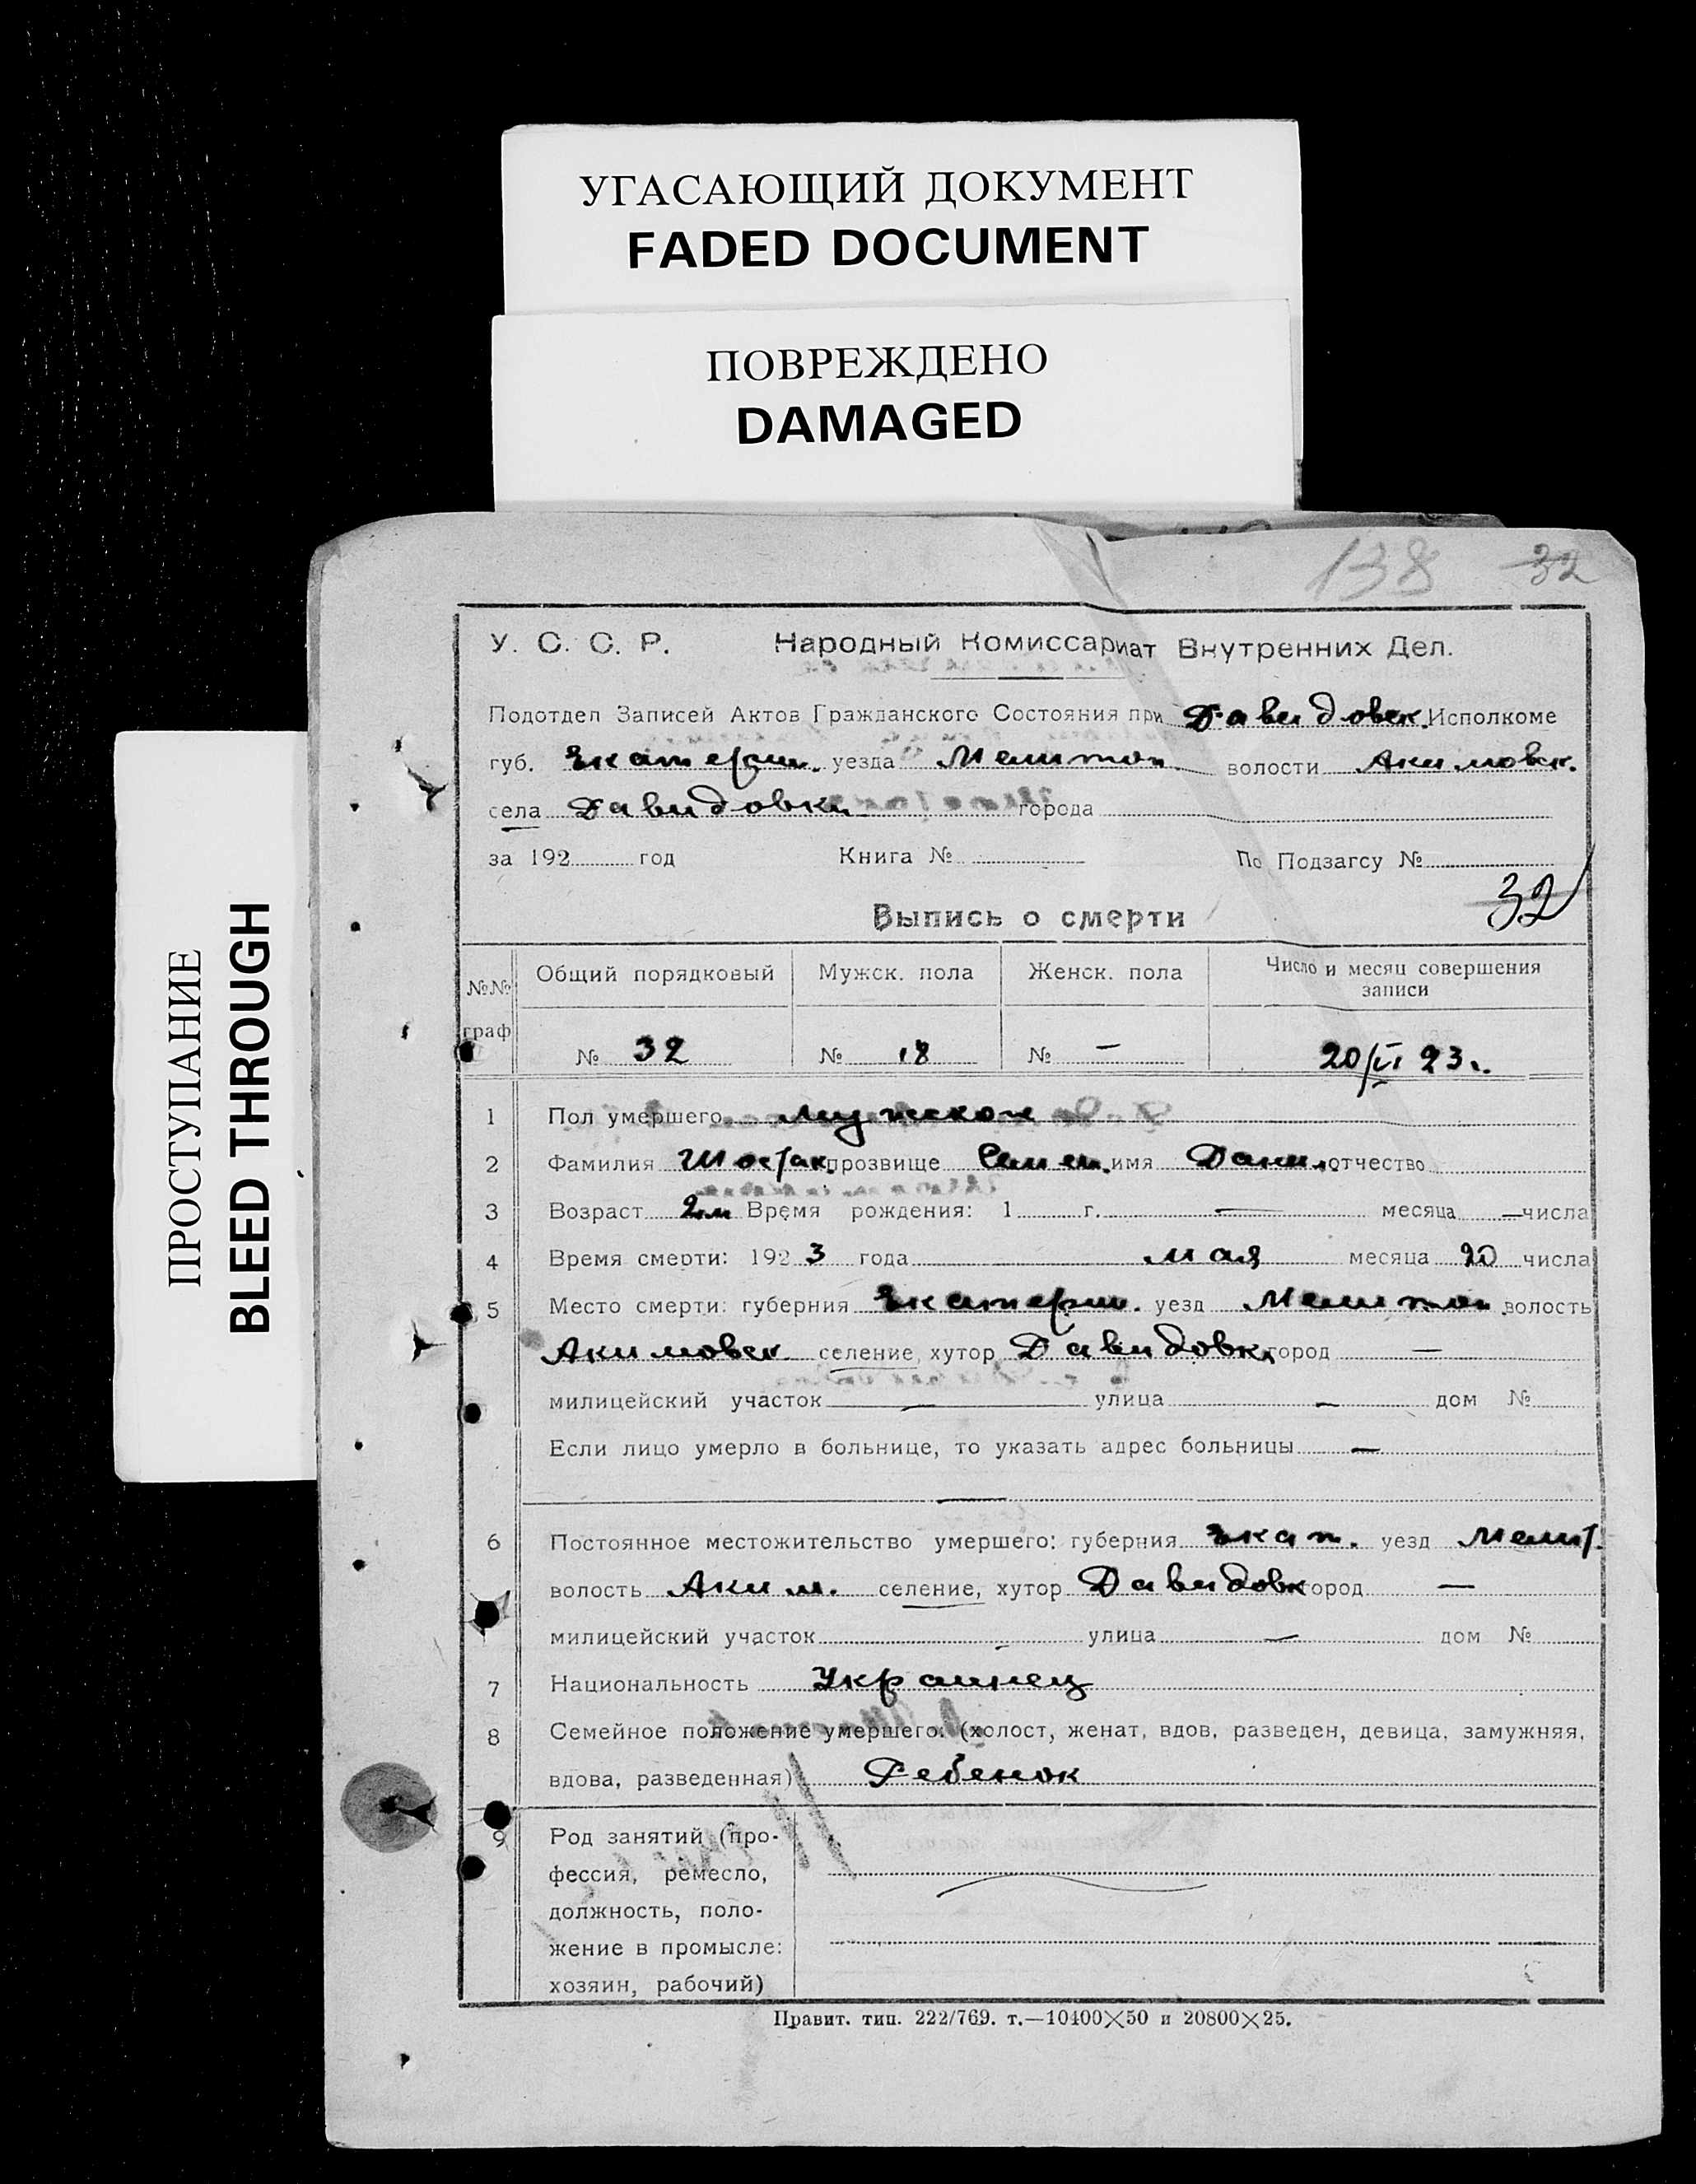 УГАСАЮЩИЙ ДОКУМЕНТ
FADED DOCUMENT
ПОВРЕЖДЕНО
DAMAGED
ПРОСТУПАНИЕ
BLEED THROUGH
138 32
У. С. С. Р. Народный Комиссариат Внутренних Дел.
Подотдел Записей Актов Гражданского Состояния при Давидовск. Исполкоме
губ. Екатерин. уезда Мелитоп. волости Акимовск.
села Давидовки города
за 192 год Книга № По Подзагсу №
32
Выпись о смерти
№№ граф Общий порядковый Мужск. пола Женск. пола Число и месяц совершения записи
№ 32 № 18 № — 20/VI 23 г.
1 Пол умершего мужской
2 Фамилия Шостак прозвище Семен имя Данил. отчество
3 Возраст 2 м Время рождения: 1 г. — месяца — числа
4 Время смерти: 1923 года мая месяца 20 числа
5 Место смерти: губерния Екатерин. уезд Мелитоп волость
Акимовск селение, хутор Давидовк город —
милицейский участок — улица — дом №
Если лицо умерло в больнице, то указать адрес больницы —
6 Постоянное местожительство умершего: губерния Екат. уезд Мелит.
волость Аким. селение, хутор Давидовк город —
милицейский участок - улица — дом №
7 Национальность Украинец
8 Семейное положение умершего: (холост, женат, вдов, разведен, девица, замужняя,
вдова, разведенная) Ребенок
9 Род занятий (про-
фессия, ремесло,
должность, поло-
жение в промысле:
хозяин, рабочий)
Правит. тип. 222/769. т.—10400×50 и 20800×25.